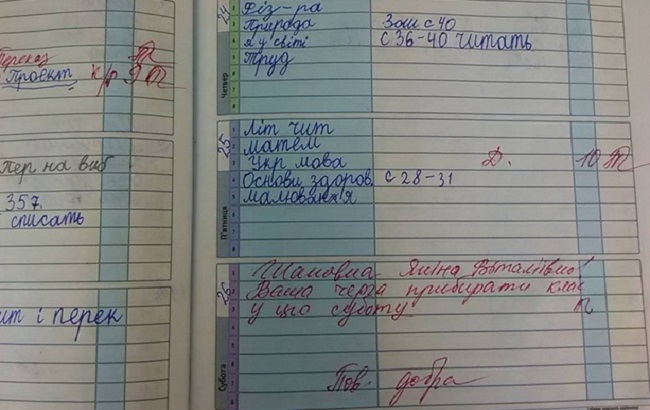 Переказ
Проект к/р 9
Пер на виб
357.
списать
ит і перек
24
Четвер
Фіз-ра
Природа Зош с 40
я у світі с 36-40 читать
Труд
25
П'ятниця
Літ чит
матем
Укр мова Д. 10
Основи здоров. с 28-31
малювання
26
Субота
Шановна Яніна Віталіївно
Ваша черга прибирати клас
у цю суботу!
Пов. добра